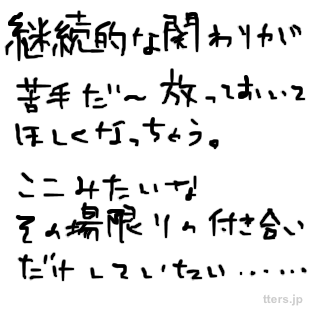 継続的な関わりが
苦手だ〜放っておいて
ほしくなっちゃう。
ここみたいな
その場限りの付き合い
だけしていたい……
tters.jp